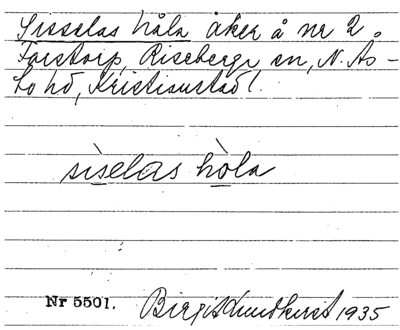 Sisselas håla åker å nr 2
Færstorp, Riseberga sn, N. Ås-
bo hd, Kristianstad l.
sìselas hòla
Nr 5501. Birgit Lundkvist 1935